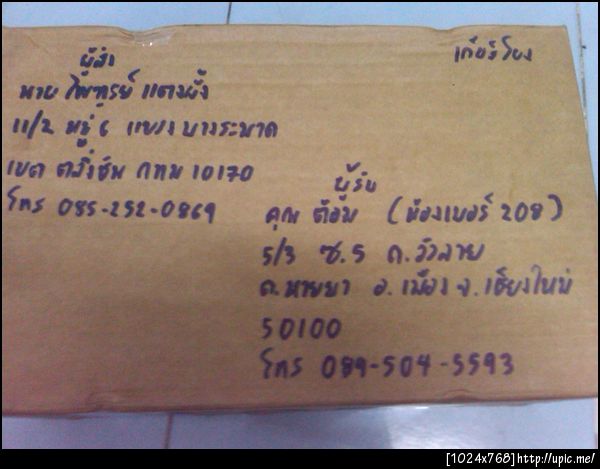 ผู้ส่ง
นาย ไพฑูรย์ แตงยิ้ง
11/2 หมู่ 6 แขวง บางระมาด
เขต ตลิ่งชัน กทม 10170
โทร 085-252-0869
เกียร์โยง
ผู้รับ
คุณ ต้อม (ห้องเบอร์ 208)
5/3 ซ.5 ถ.วัวลาย
ต.หายยา อ.เมือง จ.เชียงใหม่
50100
โทร 089-504-5593
[1024x768]http://upic.me/